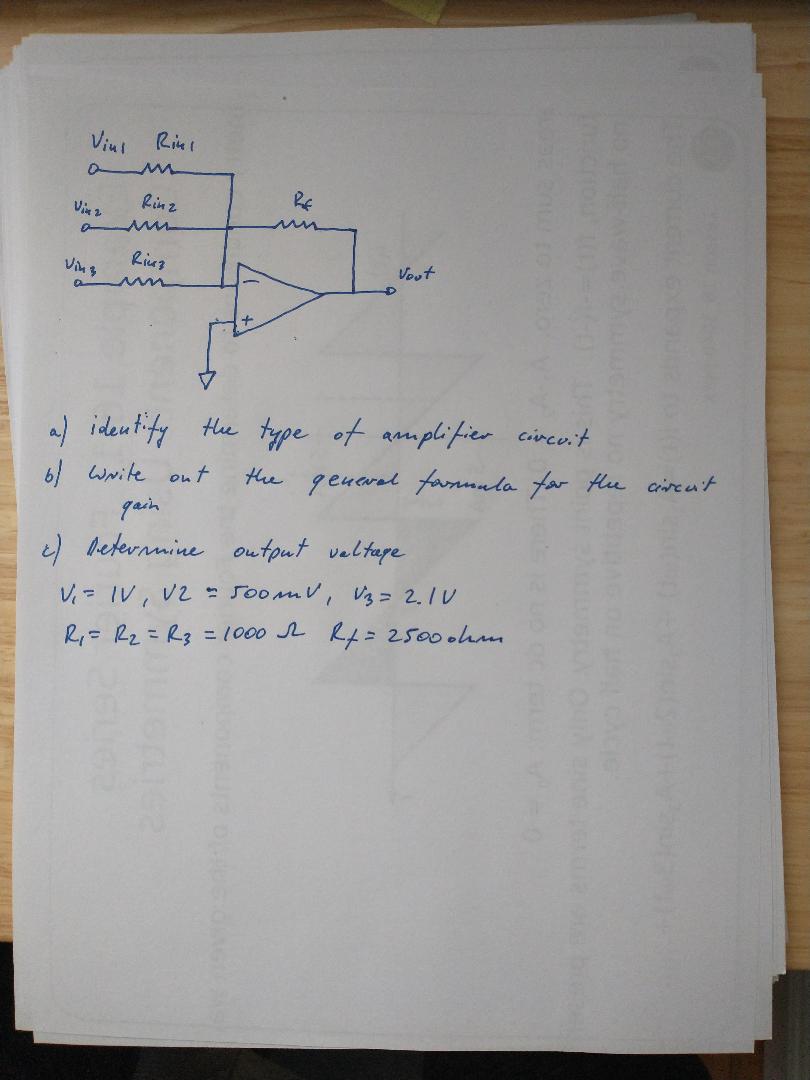 Vin1 Rin1
Vin2 Rin2 Rf
Vin3 Rin3
Vout
−
+
a) identify the type of amplifier circuit
b) Write out the general formula for the circuit
gain
c) Determine output voltage
V1 = 1V, V2 = 500mV, V3 = 2.1V
R1 = R2 = R3 = 1000 Ω Rf = 2500 ohm